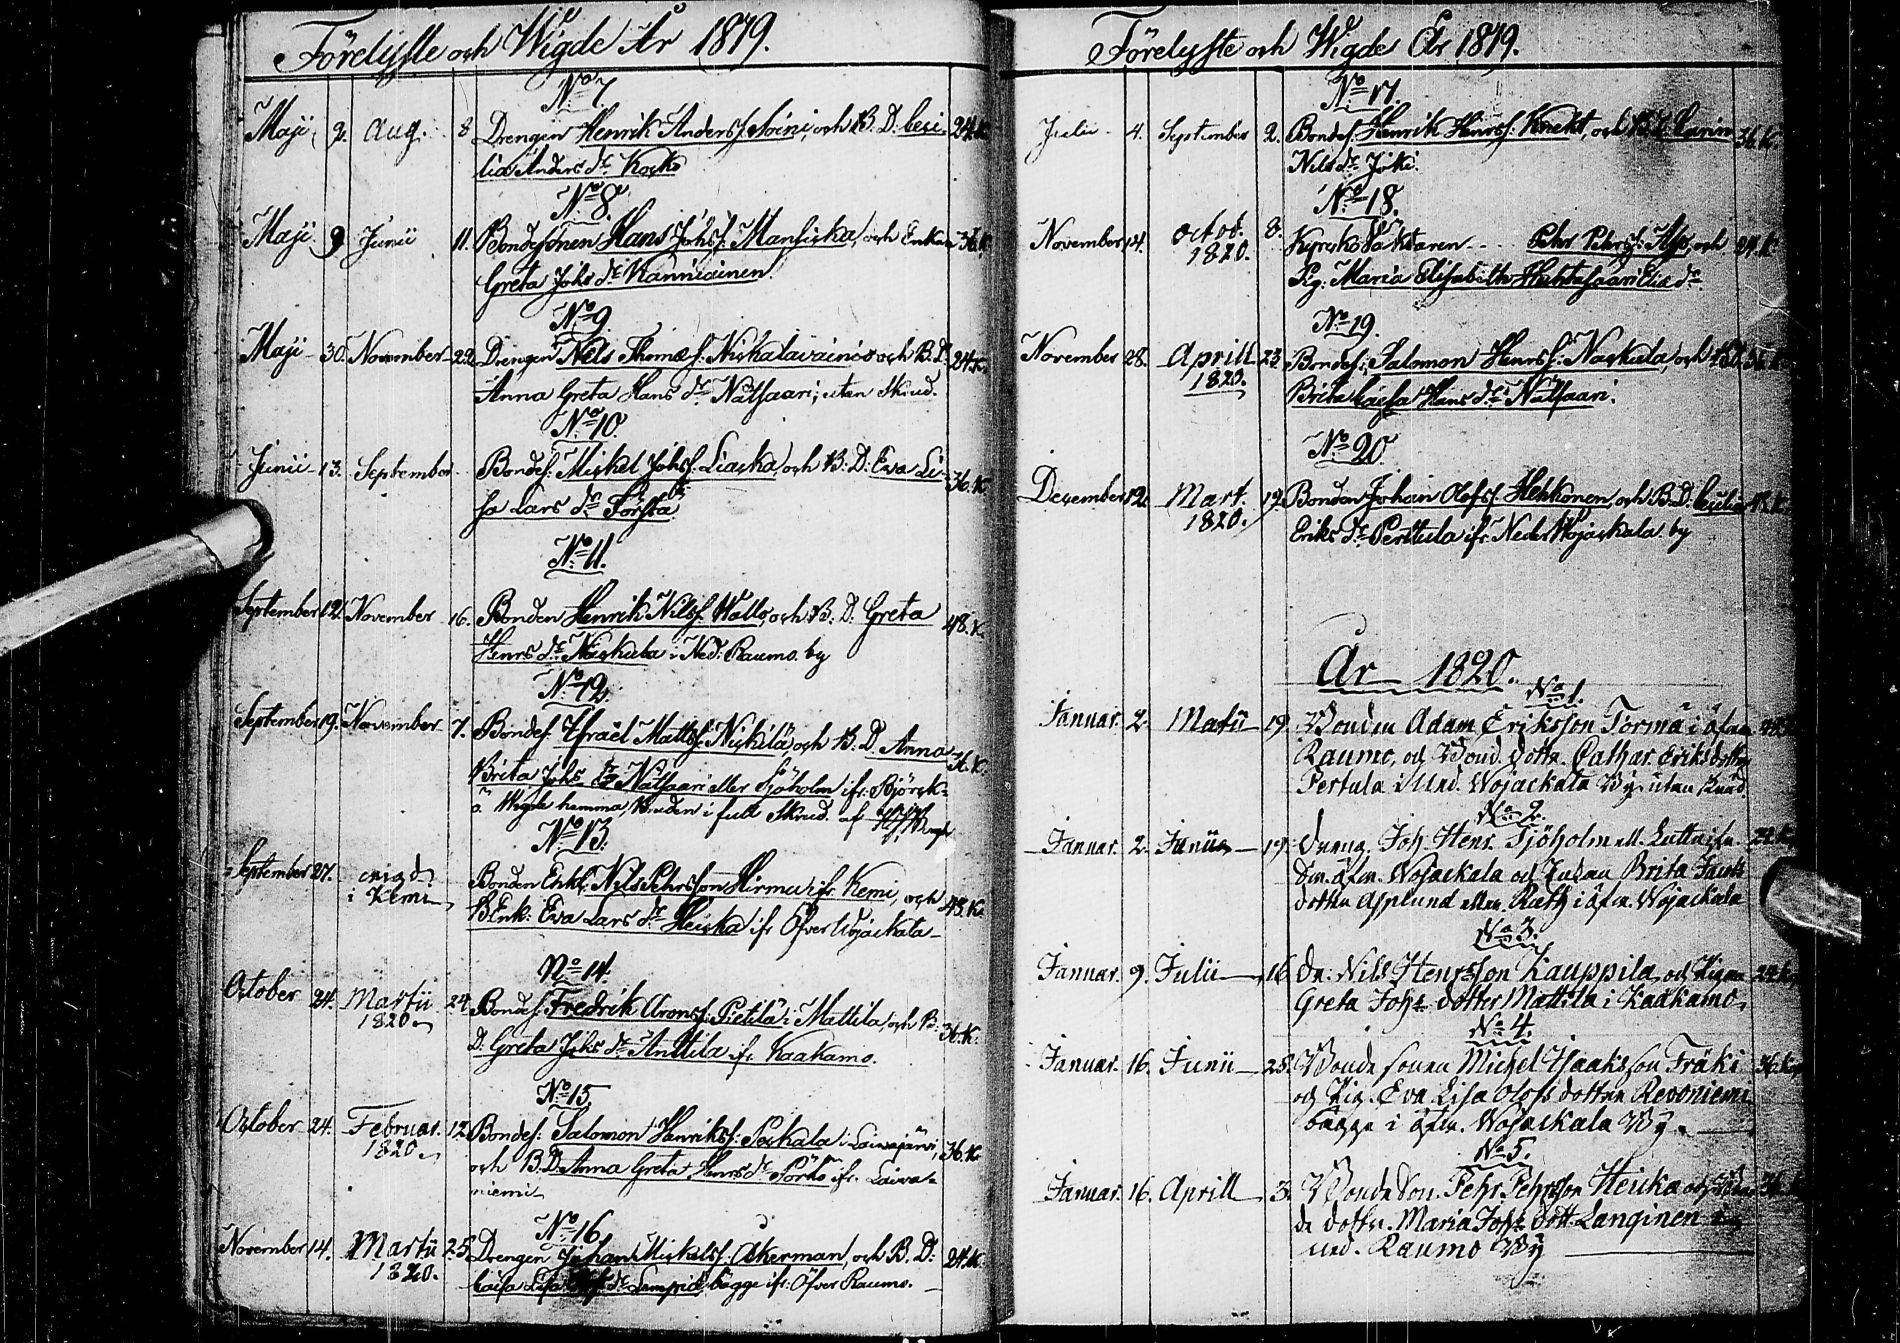 Förelyste och Wigde År 1819.
No 7
Maji 9. Aug. 8 Drengen Henrik Anders s. Soini, och B. D. Ceci- 24. K.
lia Anders dr Koско
No 8.
Maji 9 Junii 11. Bondesonen Hans Johs s. Mansicka, och Enkan 36. K.
Greta Johs dr Kanniainen.
No 9.
Maji 30. November 22. Drengen Nils Thomæ s. Niskalavainio och B. D. 24. K.
Anna Greta Hans dr Nätsaari; utan Skrud.
No 10.
Junii 13. September Bondes. Michel Johs s. Liacka, och B. D. Eva Li- 36. K.
sa Lars dr Första
No 11.
September 12. November 16. Bonden Henrik Nils s. Wallo, och B. D. Greta 48. K.
Henrs dr Nackula i Ned. Raumo by
No 12.
September 19. November 7. Bondes. Israël Matts s. Nickilä och B. D. Anna 36. K.
Brita Johs dr Nätsaari eller Sjöholm ifr. Björck-
ö Wigde hemma, Bruden i full Skrud. af
No 13.
September 27. vigd i Kemi Bonden Enkl. Nils Pehrsson Hirmu ifr. Kemi, och 48. K.
B Enk: Eva Lars dr Heicka ifr Öfver Wojackala
No 14.
October 24. Martii 1820 24 Bondes. Fredrik Arons s. Pietilä i Mattila, och B. 36. K.
D. Greta Johs dr Anttila ifr. Kaakamo.
No 15.
October 24. Februar. 1820 12 Bondes. Salomon Henriks s. Pockala i Laivajärvi, 36. K.
och B. D. Anna Greta Henrs dr Pörhö ifr. Laiva-
niemi
No 16.
November 14. Martii 1820. 25 Drengen Johan Mickels s. Åkerman, och B. D. 24. K.
Caisa Lisa dr Lampid, bägge ifr. Öfver Raumo.
Förelyste och Wigde År 1819.
No 17.
Julii 4. September 2. Bondes. Henrik Henrs s. Knekt, och B. D. Karin 36. K.
Nils dr Joki.
No 18.
November 14. Octob. 1820. 8. Kyrckovacktaren Petter Peters s. Alp, och 24. K.
Pig. Maria Elisabeth Huhtasaari Elia dr
No 19.
November 28. Aprill 1820. 23 Bondes. Salomon Henrs s. Nackula, och B. D. 36. K.
Brita Caisa Hans dr Nätsaari.
No 20.
December 12. Mart. 1820. 12. Bonden Johan Olofs s. Hehkonen, och B. D. Cecilia 48. K.
Eriks dr Perttula ifr. Neder Wojackala by
År 1820.
No 1.
Januar. 2. Martii 19. Bonden Adam Eriksson Tormä i öfver 48. K.
Raumo, och Bond. dottr. Cathar. Eriksdotter
Pertula i Ned. Wojackala By utan Skrud.
No 2.
Januar. 2. Junii 17. Dreng. Joh. Henr. Sjöholm ell. Luttu ifr. 24. K.
dn. öfver. Wojackala och Enkan Brita Jacobs
dotter Asplund eller Räth i öfver. Wojackala
No 3.
Januar. 9. Julii 16 Dr: Nils Henrsson Kauppila, och Pigan 24. K.
Greta Johs dotter Mattila i Kaakamo.
No 4.
Januar. 16. Junii 25. Bonde sonen Michel Isaaksson Träki 36. K.
och Pig. Eva Lisa Olofs dottren Revoniemi
bägge i öfver. Wojackala By.
No 5.
Januar. 16. Aprill 3. Bonde Son. Pehr Pehrsson Heicka och Bon- 36. K.
de dottr. Maria Johs dott. Langinen
ned. Raumo By